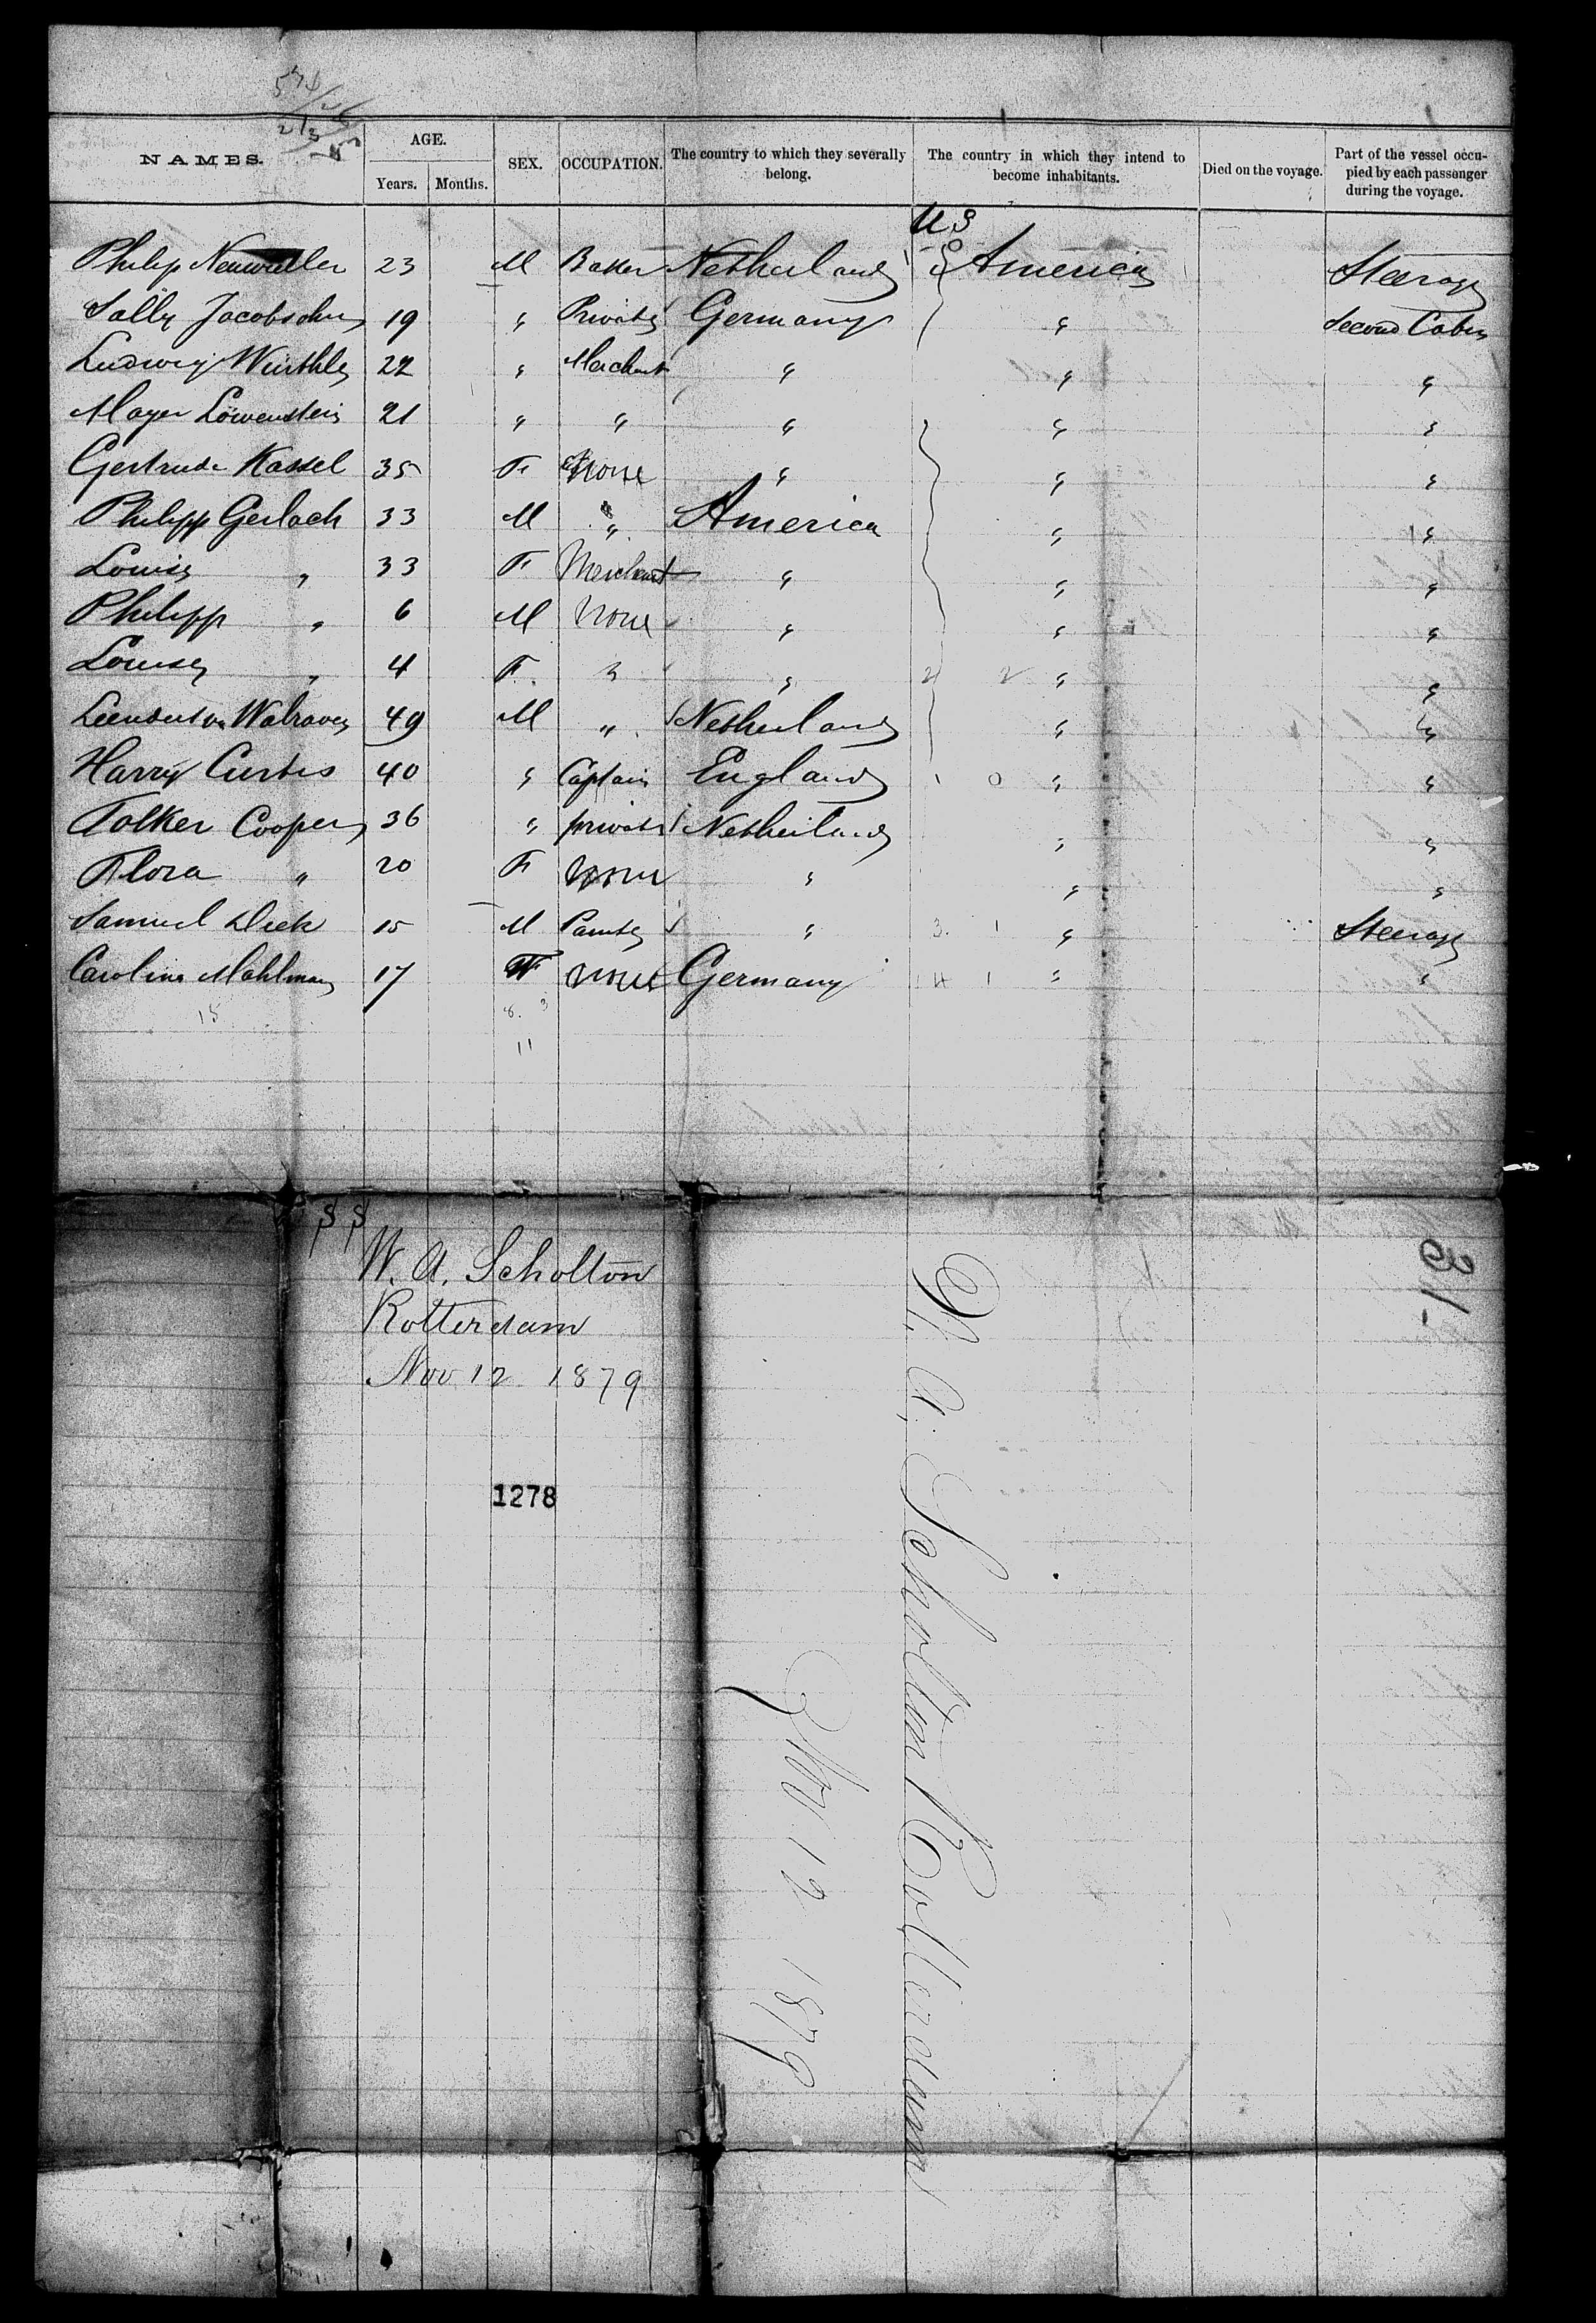 NAMES. AGE. Years. Months. SEX. OCCUPATION. The country to which they severally belong. The country in which they intend to become inhabitants. Died on the voyage. Part of the vessel occupied by each passenger during the voyage.
U S
Philip 23 M Baker Netherland America Steerage
Sally Jacobsohn 19 " Private Germany " Second Cabin
Ludwig Wurthle 22 " Merchant " " "
Mayer Löwenstein 21 " " " " "
Gertrude Kassel 35 F None " " "
Philipp Gerlach 33 M " America " "
Louise " 33 F Merchant " " "
Philipp " 6 M None " " "
Louise " 4 F " " 2 2 " "
Walraven 49 M " Netherland " "
Harry Curtis 40 " Captain England 1 0 " "
Folker Cooper 36 " private Netherland " "
Flora " 20 F None " " "
Samuel Dick 15 M " 3. 1 " Steerage
Carolina Mahlman 17 F None Germany 4 1 " "
15 8. 3
11
S S
W. A. Scholton
Rotterdam
Nov 12 1879
1278
31-
W. A. Scholten Rotterdam
Nov 12 1879